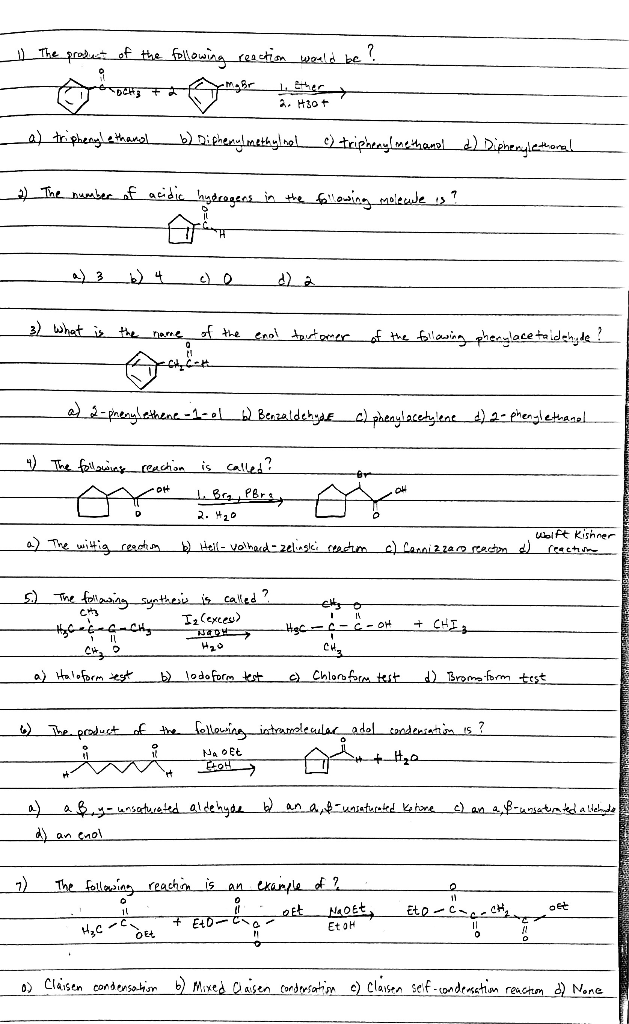 1) The product of the following reaction would be?
O
C OCH3 + 2 MgBr 1. Ether
2. H3O+
a) triphenylethanol b) Diphenylmethylnol c) triphenylmethanol d) Diphenylethanal
2) The number of acidic hydrogens in the following molecule is?
O
C H
a) 3 b) 4 c) 0 d) 2
3) What is the name of the enol tautomer of the following phenylacetaldehyde?
O
CH2 C-H
a) 2-phenylethene-1-ol b) Benzaldehyde c) phenylacetylene d) 2-phenylethanol
4) The following reaction is called?
Br
OH 1. Br2, PBr3 OH
O 2. H2O O
a) The wittig reaction b) Hell-volhard-zelinski reaction c) Cannizzaro reaction d) Wolft Kishner reaction
5.) The following synthesis is called?
CH3 I2 (excess) CH3 O
H3C-C-C-CH3 NaOH H3C-C-C-OH + CHI3
CH3 O H2O CH3
a) Haloform test b) Iodoform test c) Chloroform test d) Bromoform test
6) The product of the following intramolecular adol condensation is?
O O NaOEt O
H H EtOH H + H2O
a) a β,γ-unsaturated aldehyde b) an α,β-unsaturated ketone c) an α,β-unsaturated aldehyde
d) an enol
7) The following reaction is an example of?
O O O
H3C-C OEt + EtO-C-C OEt NaOEt, EtO-C-C-CH2 C OEt
O EtOH O O
a) Claisen condensation b) Mixed Claisen condensation c) Claisen self-condensation reaction d) None